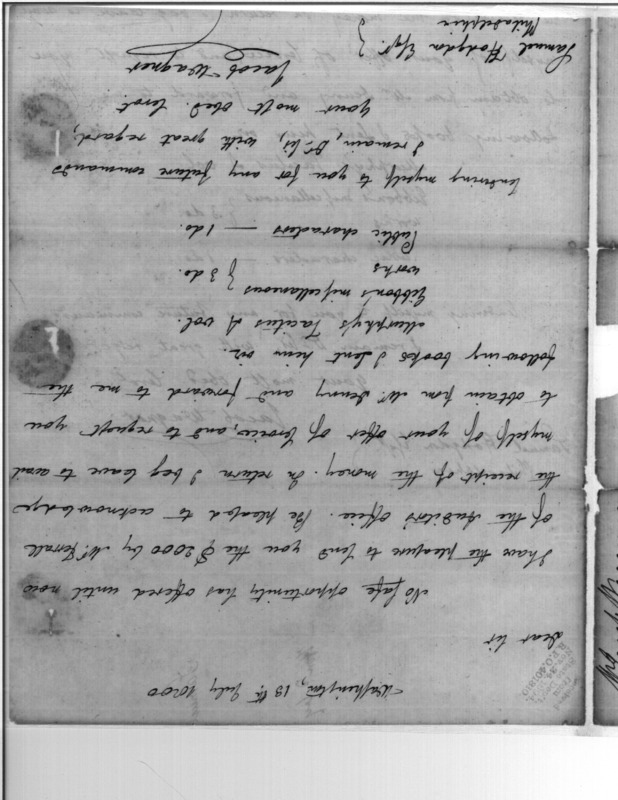 Washington, 18th. July 1800
Dear Sir
No safe opportunity has offered until now
I have the pleasure to send you the $2000 by Mr.
of the Auditor's office. Be pleased to acknowledge
the receipt of the money. In return I beg leave to avail
myself of your offer of service, and to request you
to obtain from Mr. Denny and forward to me the
following books I lent him viz.
Murphy's Tacitus 4 vol.
Gibbon's miscellaneous } 3 do.
works
Public characters — 1 do.
Tendering myself to you for any future commands
I remain, Dr. Sir, with great regard,
your most obed. servt.
Jacob Wagner
Samuel Hodgdon Esqr. }
Philadelphia